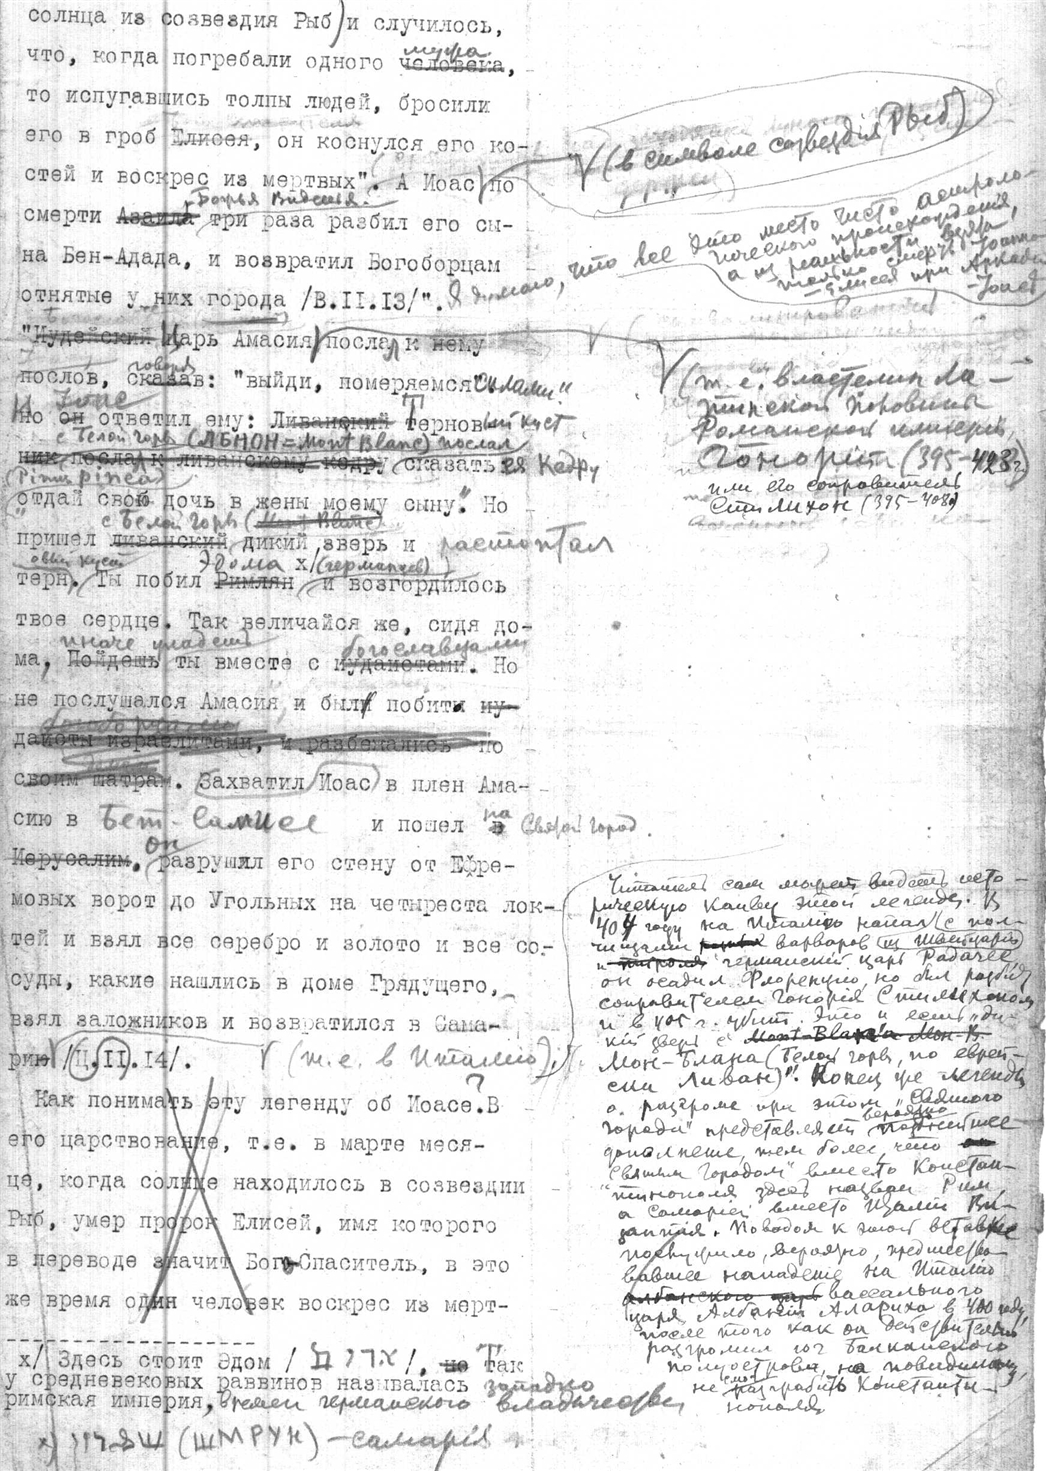 солнца из созвездия Рыб) и случилось,
мужа
что, когда погребали одного человека,
то испугавшись толпы людей, бросили
его в гроб Елисея, он коснулся его ко-
стей и воскрес из мертвых". А Иоас по
Божья Виденья
смерти Азаила три раза разбил его сы-
на Бен-Адада, и возвратил Богоборцам
отнятые у них города /В.II.I3/".
V (в символе созвездия Рыб)
Я думаю, что все это место чисто астроло-
гического происхождения,
а из реальности взята
только смерть Иоанна
-Елисея при Аркадии
-Иоасе
"Иудейский Царь Амасия послал к нему
говоря
послов, сказав: "выйди, померяемся силами".
И Иоас
Но он ответил ему: Ливанский Терновый куст
с Белой горы (ЛБНОН = Mont Blanc) послал
ник послал к ливанскому кедру сказать ея Кедру
(Pinus pinea)
отдай свою дочь в жены моему сыну". Но
с Белой горы (Mont Blanc)
пришел ливанский дикий зверь и растоптал
овый куст Эдома х/ (германцев)
терн. Ты побил Римлян и возгордилось
твое сердце. Так величайся же, сидя до-
иначе упадешь богославцами
ма, Пойдешь ты вместе с иудаистами. Но
не послушался Амасия, и были побиты иу-
богоборцами
даисты израелитами, и разбежались по
домам
своим шатрам. Захватил Иоас в плен Ама-
сию в Бет-Самисе и пошел в на Святой город.
он
Иерусалим, разрушил его стену от Ефре-
мовых ворот до Угольных на четыреста лок-
тей и взял все серебро и золото и все со-
суды, какие нашлись в доме Грядущего,
взял заложников и возвратился в Сама-
рию /Ц.II.I4/. V (т.е. в Италию).
V (т.е. властелин Ла-
тинской половины
Романской империи,
Гонорий (395-423 г.)
или его соправитель
Стилихон (395-408)
Читатель сам может видеть исто-
рическую канву этой легенды. В
404 году на Италию напал с пол-
чищами варваров из Швейцарии
германский царь Радагес,
он осадил Флоренцию, но был разбит
соправителем Гонория Стилихоном
и в 405 г. убит. Это и есть "ди-
кий зверь с Mont-Blanc'а Мон-Б.
Мон-Блана (Белой горы, по еврей-
ски Ливан)". Конец же легенды
о разгроме при этом "Святого
города" представляет вероятно позднейшее
дополнение, тем более, что
"Святым городом" вместо Констан-
тинополя здесь назван Рим,
а Самарией вместо Италии Ви-
зантия. Поводом к этой вставке
послужило, вероятно, предшество-
вавшее нападение на Италию
вассального
царя Албании Алариха в 400 году,
после того как он действительно
разгромил юг Балканского
полуострова, но повидимому,
не смог разграбить Константи-
нополя
Как понимать эту легенду об Иоасе? В
его царствование, т.е. в марте меся-
це, когда солнце находилось в созвездии
Рыб, умер пророк Елисей, имя которого
в переводе значит Бог-Спаситель, в это
же время один человек воскрес из мерт-
х/ Здесь стоит Эдом /אדום/, но Так
у средневековых раввинов называлась западно
римская империя, времен германского владычества
х) שמרון (ШМРУН) - самария